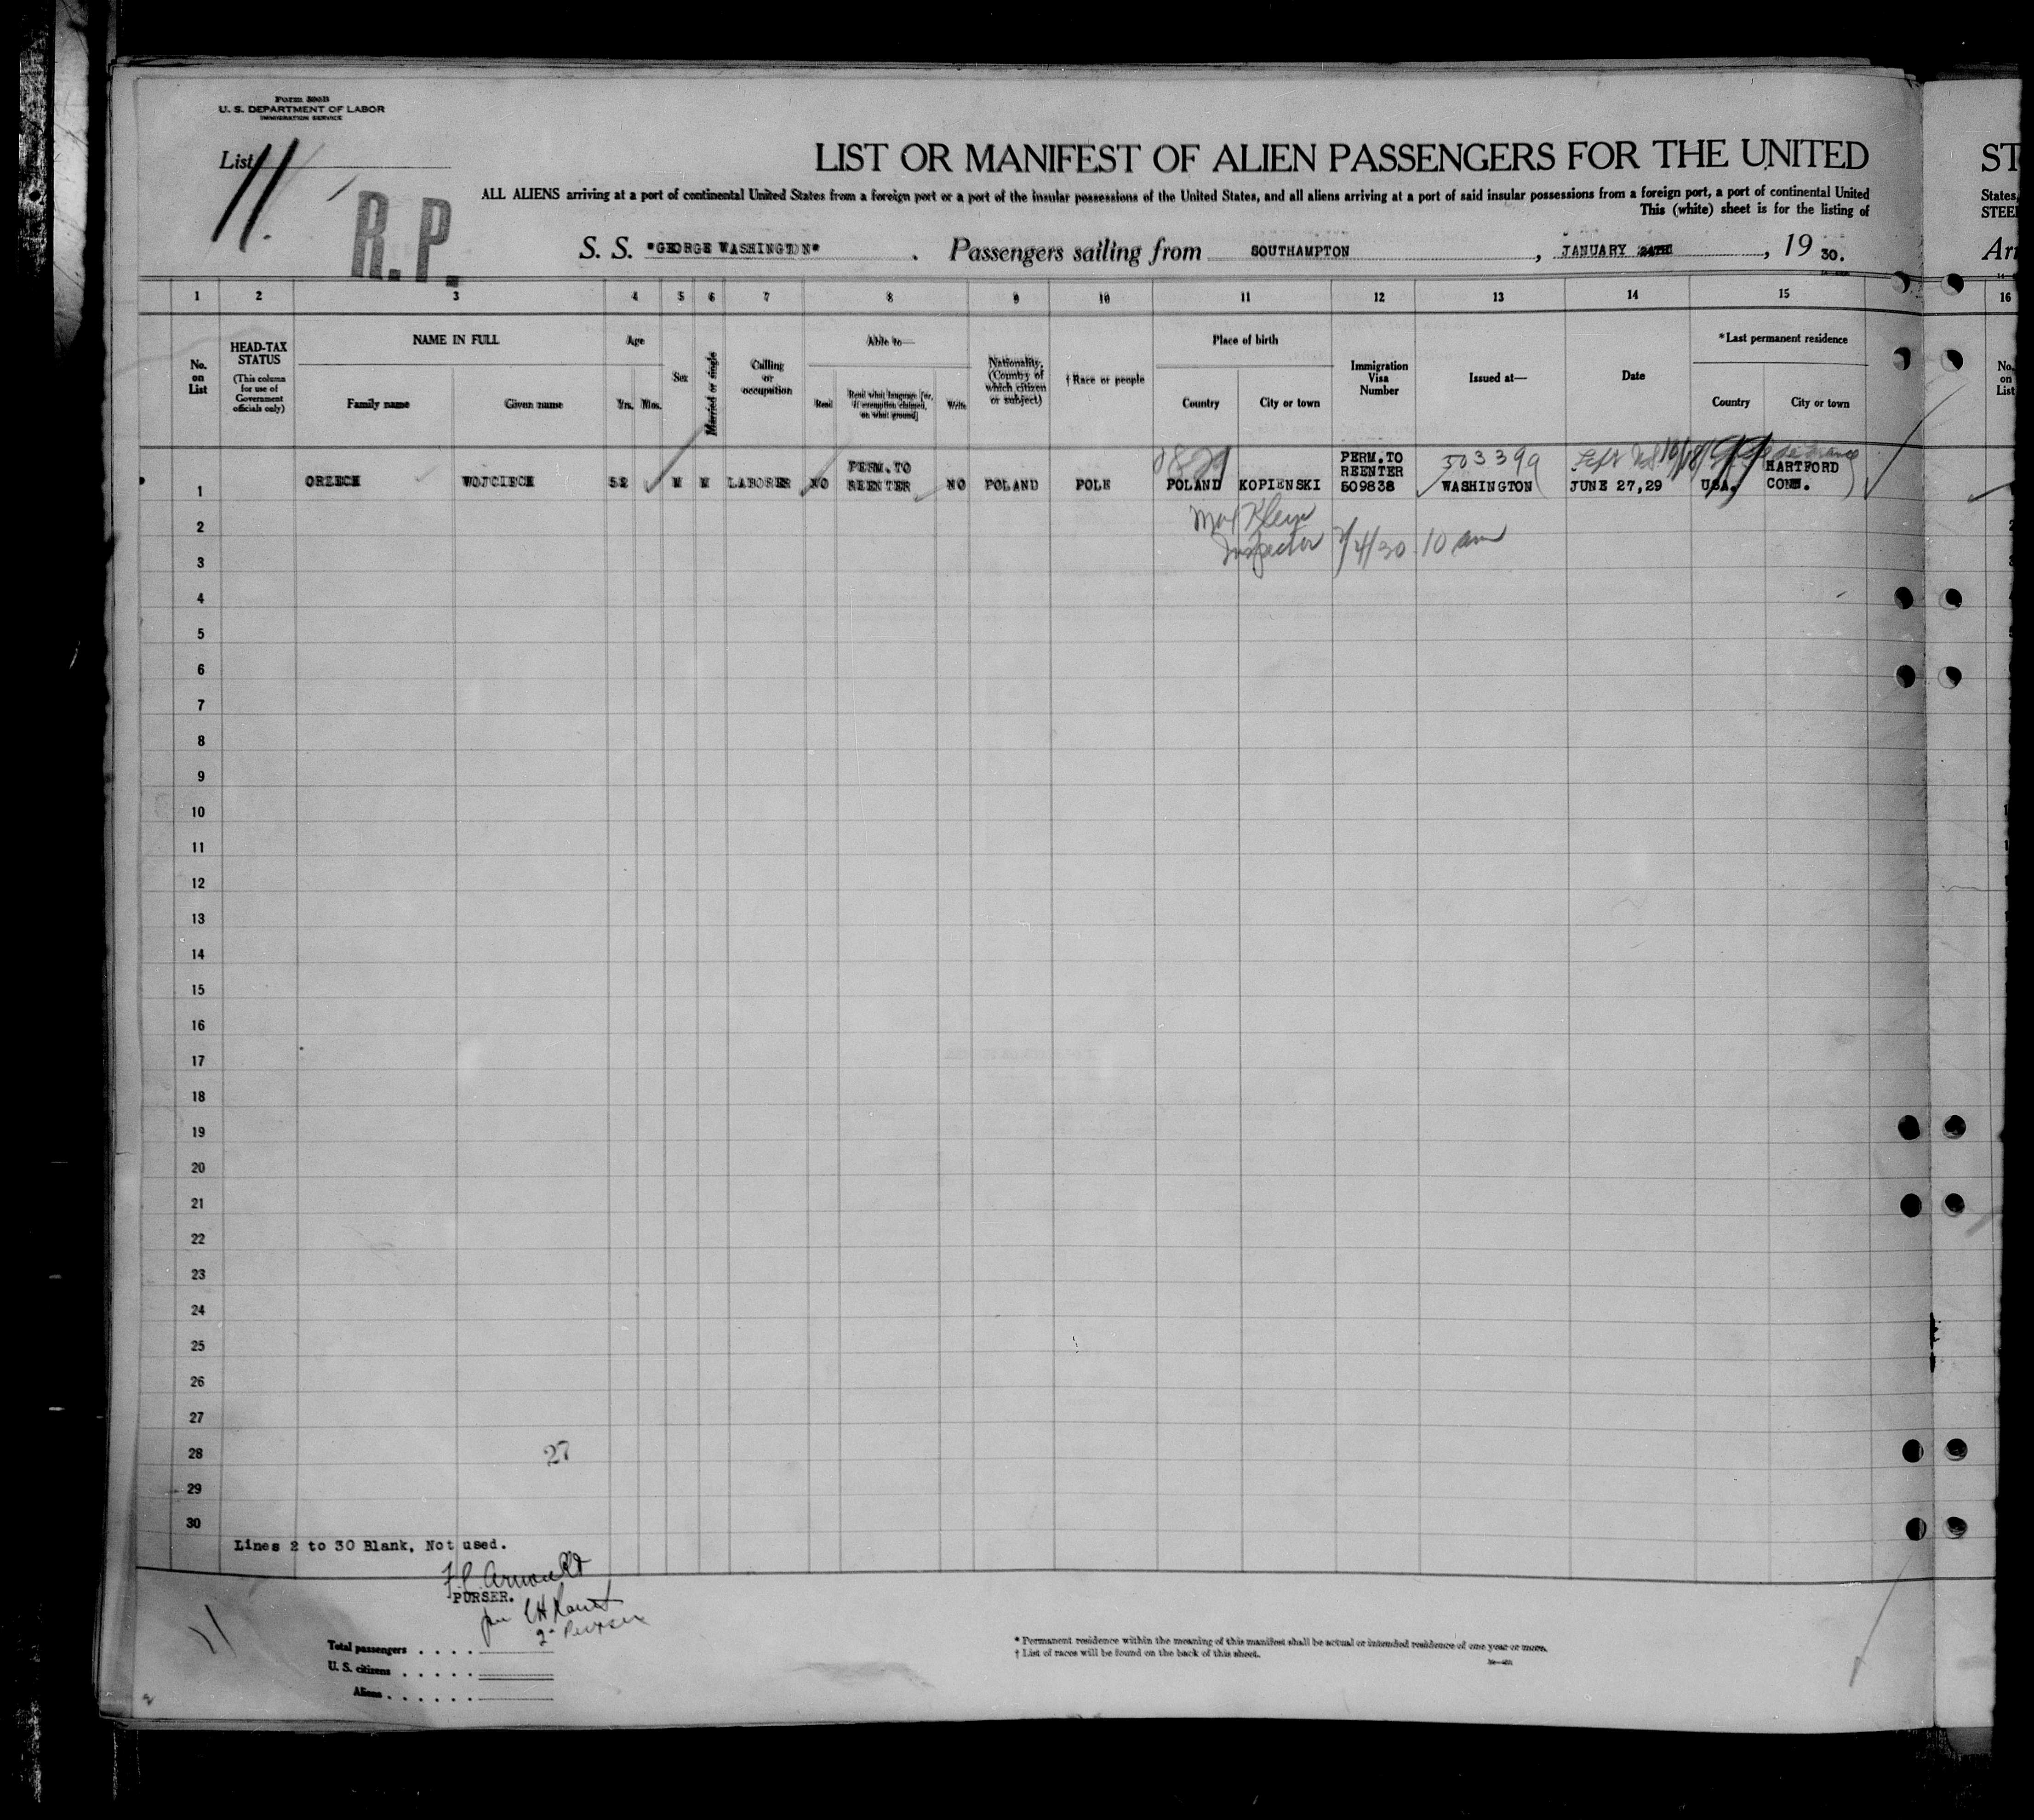 Form 500B
U. S. DEPARTMENT OF LABOR
IMMIGRATION SERVICE
List 11.
R.P.
LIST OR MANIFEST OF ALIEN PASSENGERS FOR THE UNITED
ALL ALIENS arriving at a port of continental United States from a foreign port or a port of the insular possessions of the United States, and all aliens arriving at a port of said insular possessions from a foreign port, a port of continental United
This (white) sheet is for the listing of
S. S. "GEORGE WASHINGTON" . Passengers sailing from SOUTHAMPTON , JANUARY 24TH , 19 30.
ST
States,
STEE
Arr
1 2 3 4 5 6 7 8 9 10 11 12 13 14 15 16
No. on List
HEAD-TAX STATUS
(This column for use of Government officials only)
NAME IN FULL
Family name
Given name
Age
Yrs. Mos.
Sex
Married or single
Calling or occupation
Able to—
Read
Read what language [or, if exemption claimed, on what ground]
Write
Nationality. (Country of which citizen or subject)
† Race or people
Place of birth
Country
City or town
Immigration Visa Number
Issued at—
Date
*Last permanent residence
Country
City or town
No. on List
1 ORZECH WOJCIECH 52 M M LABORER NO PERM. TO REENTER NO POLAND POLE POLAND KOPIENSKI PERM. TO REENTER 509838 WASHINGTON JUNE 27,29 USA. HARTFORD CONN.
503399
Max Klein
Inspector 2/4/30 10 am
2
3
4
5
6
7
8
9
10
11
12
13
14
15
16
17
18
19
20
21
22
23
24
25
26
27
28 27
29
30
Lines 2 to 30 Blank, Not used.
PURSER.
11
Total passengers . . . .
U. S. citizens . . . . .
Aliens . . . . . .
* Permanent residence within the meaning of this manifest shall be actual or intended residence of one year or more.
† List of races will be found on the back of this sheet.